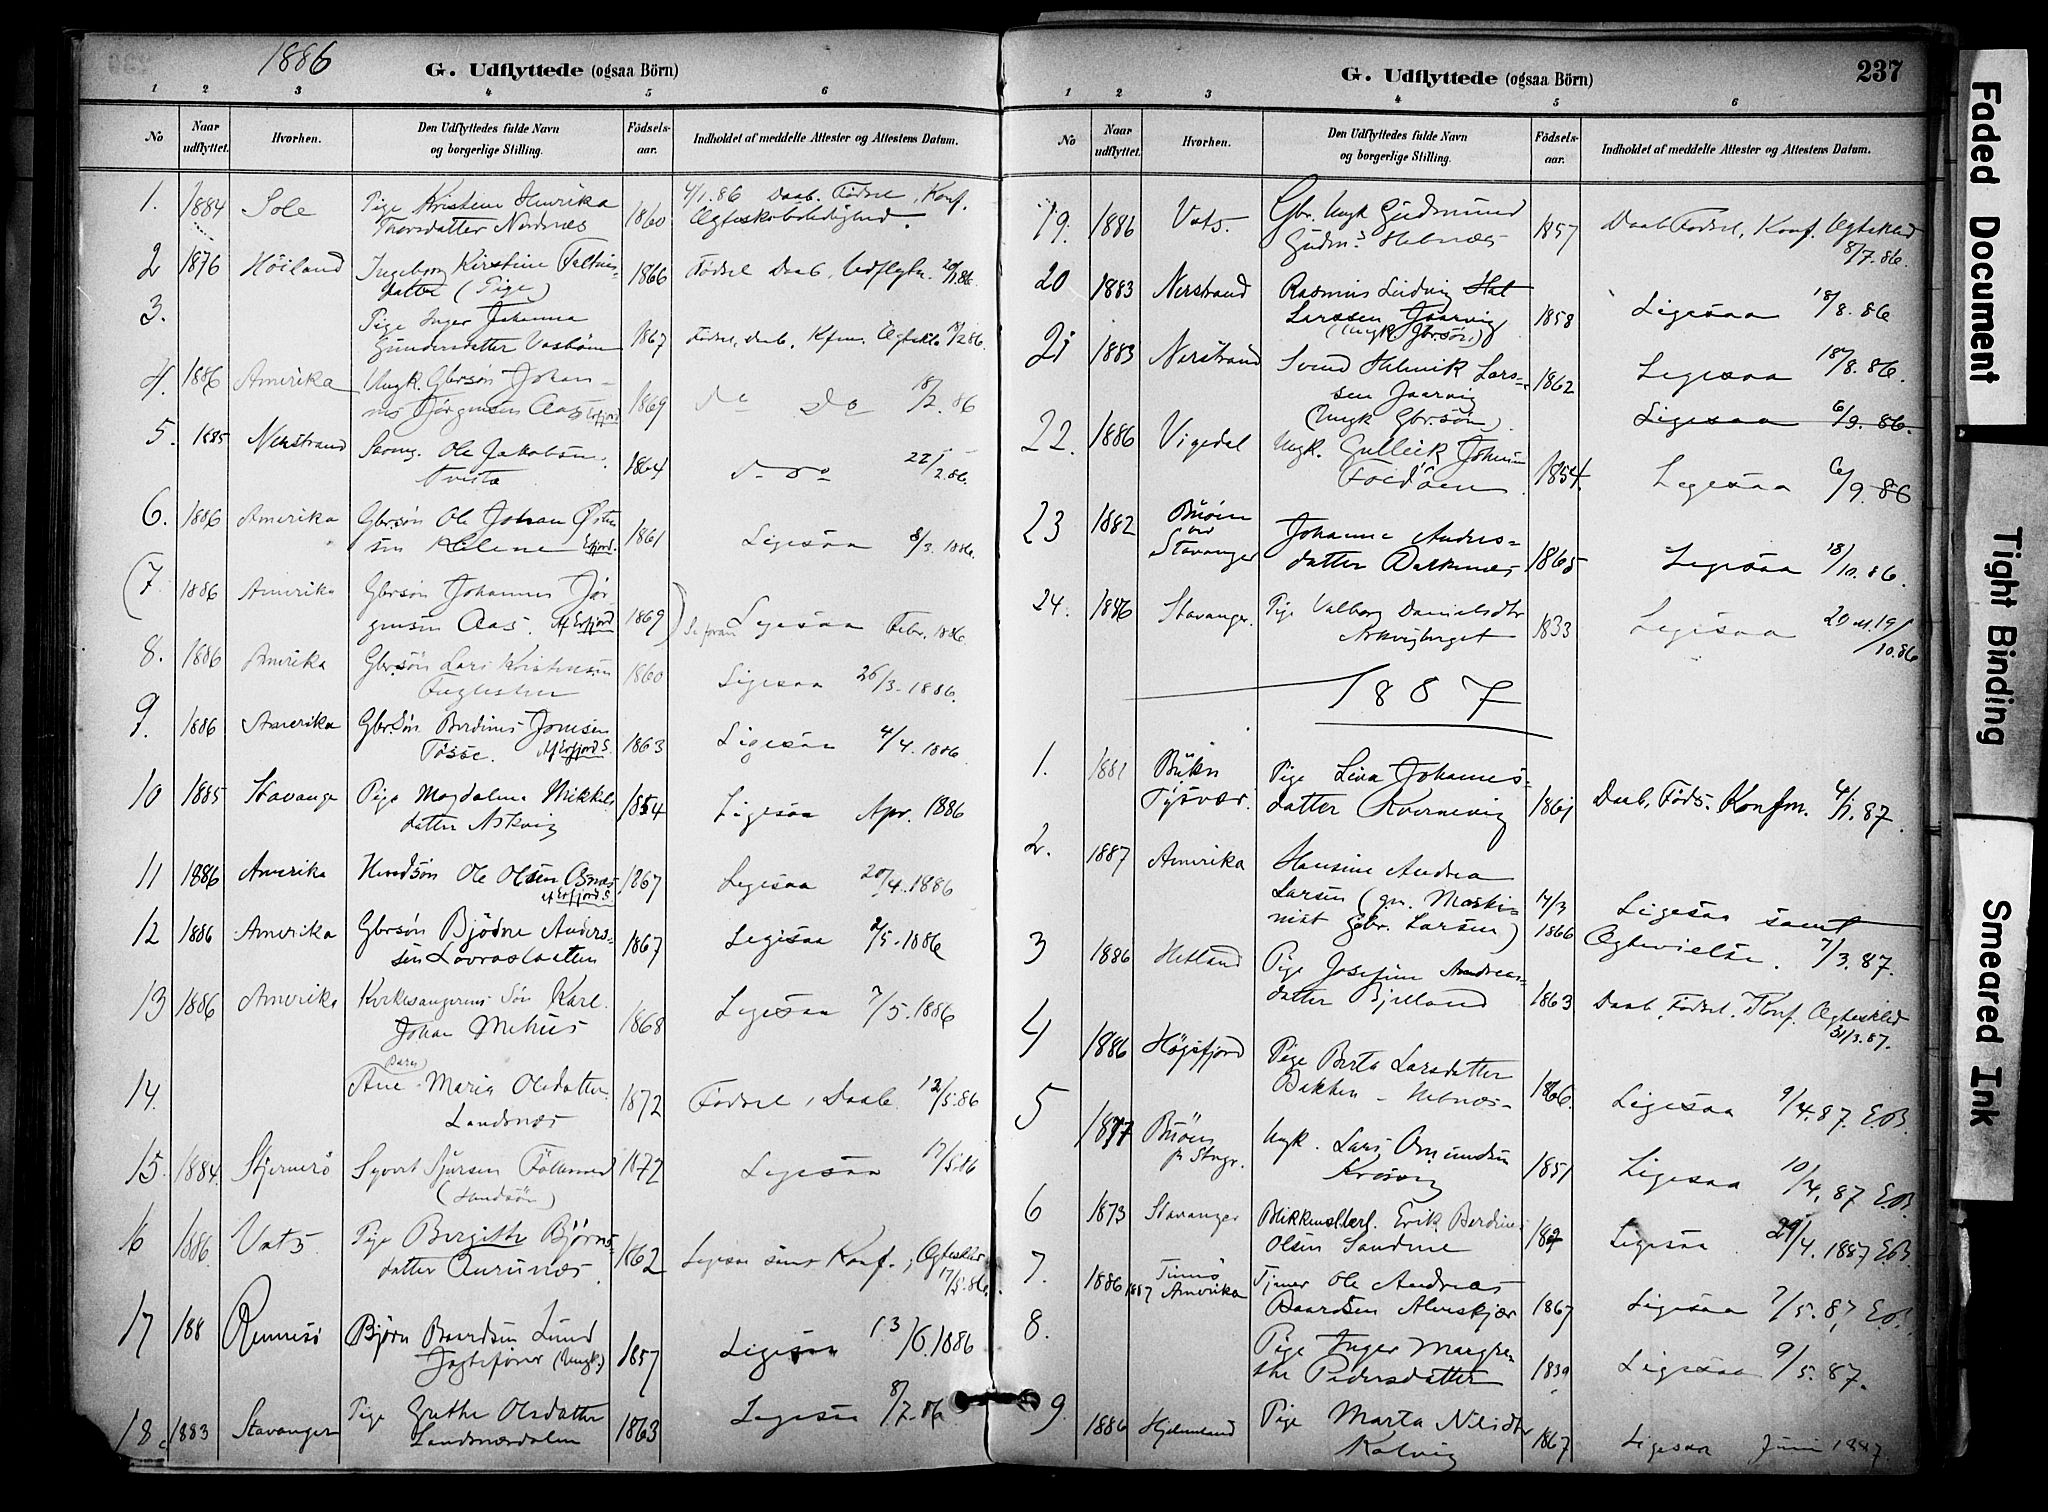 1886
G. Udflyttede (ogsaa Börn)
1 2 3 4 5 6
No
Naar udflyttet.
Hvorhen.
Den Udflyttedes fulde Navn
og borgerlige Stilling.
Födsels-
aar.
Indholdet af meddelte Attester og Attestens Datum.
1. 1884 Sole Pige Kristine Henrika 1860 4/1.86 Daab. Fødsel, Konf.
Thorsdatter Nordnæs
2 1876 Höiland Ingeborg Kirstine 1866 Födsel Daab,
datter (Pige)
3. Pige Inger Johanna 1867 Födsel, Daab,
Gundersdatter
4. 1886 Amerika Ungk. Gbrsön Johan- 1869 do Do 18/2.86
nes Jörgensen Aas Erfjord
5. 1885 Nerstrand Ole Jakobsen 1864 22/2.86.
6. 1886 Amerika Gbrsön Ole Johan 1861 Ligesaa 8/3.1886.
Erfjord.
(7 1886 Amerika Gbrsön Johannes Jör 1869) Se foran Ligesaa Febr. 1886
gensen Aas. Af Erfjord
8. 1886 Amerika Gbrsön Lars Kristensen 1860 Ligesaa 26/3.1886.
9. 1886 Amerika Gbrsön Berdines Jonsen 1863 Ligesaa 4/4.1886
Tösse. Af Erfjord S.
10 1885 Stavange Pige Magdalena Mikkels 1854 Ligesaa Apr. 1886
datter Askvig
11 1886 Amerika Ole Olsen Osnæs 1867 Ligesaa 20/4.1886
Af Erfjord S.
12 1886 Amerika Gbrsön Bjödne Anders- 1867 Ligesaa 2/5.1886
sen Lovraslaatten
13 1886 Amerika Kirkesangerens Sön Karl 1868 Ligesaa 7/5.1886
Johan Mehus
(Barn)
14. Ane Maria Olsdatter 1872 Födsel, Daab 12/5.86
Landsnæs
15. 1884. Stjernerö Syvert Sjursen 1872 Ligesaa 17/5.86
16 1886. Vats Pige Bergithe Björns- 1862 Ligesaa samt Konf.,
datter 17/5.86.
17 188 Rennesö Björn Baardsen Lund 1857 Ligesaa 13/6.1886
Jagtefører (Ungk.)
18. 1883 Stavanger Pige Grethe Olsdatter 1863 Ligesaa 8/7.86
Landsnæsdalen
G. Udflyttede (ogsaa Börn)
237
1 2 3 4 5 6
No
Naar udflyttet
Hvorhen.
Den Udflyttedes fulde Navn
og borgerlige Stilling.
Födsels-
aar.
Indholdet af meddelte Attester og Attestens Datum.
19. 1886 Vats. Gbr. Ungk Gudmund 1857 Daab Födsel, Konf.
Gudm. Hebnæs 8/7.86.
20 1883 Nerstrand Rasmus Ludvig Hal 1858 Ligesaa 18/8.86
Larssen Jaarvig
(Ungk. Gbrsön)
21 1883 Nerstrand Svend Helmik Lars- 1862 Ligesaa 18/8.86.
sen Jaarvig
(Ungk Gbrsön). Ligesaa 6/9.86.
22. 1886 Vigedal Ungk. Gulleik Johnsen 1854. Ligesaa 6/9.86
Foldöen
23 1882 Buöen Johanne Anders- 1865 Ligesaa 18/10.86.
ved Stavanger datter
24. 1886 Stavanger. Pige Valborg Danielsdtr 1833 Ligesaa 20 19/10.86
Askvigberget
1887
1. 1881 Bukn Pige Lina Johannes- 1861 Daab, Föds. Konfm. 4/1.87.
Tysvær. datter Kvernevig
2. 1887 Amerika Hansine Andrea 17/3 1866 Ligesaa samt
Larsen (gm. Maski-
nist Gbr. Larsen) 7/3.87.
3 1886 Hetland Pige Josefine Andreas- 1863 Daab, Födsel. Konf.
datter Bjelland 31/3.87.
4 1886 Högsfjord Pige Berta Larsdatter 1866. Ligesaa 9/4.87. EB
Bakken - Hebnæs -
5 1877 Buöen Ungk. Lars Omundsen 1851 Ligesaa 10/4.87 EB
p. Stvgr.
6 1873 Stavanger Erik Berdines Ligesaa 29/4.1887 EB.
Olsen Sandene
7. 1886 1887 Amerika Tjener Ole Andreas 1867 Ligesaa 7/5.87, EB.
Baardsen
8. Pige Inger Margre- 1839 Ligesaa 9/5.87.
the Pedersdatter
9 1886 Hjelmeland Pige Marta Nilsdtr 1867 Ligesaa Juni 1887.
Kalvig
Faded Document
Tight Binding
Smeared Ink